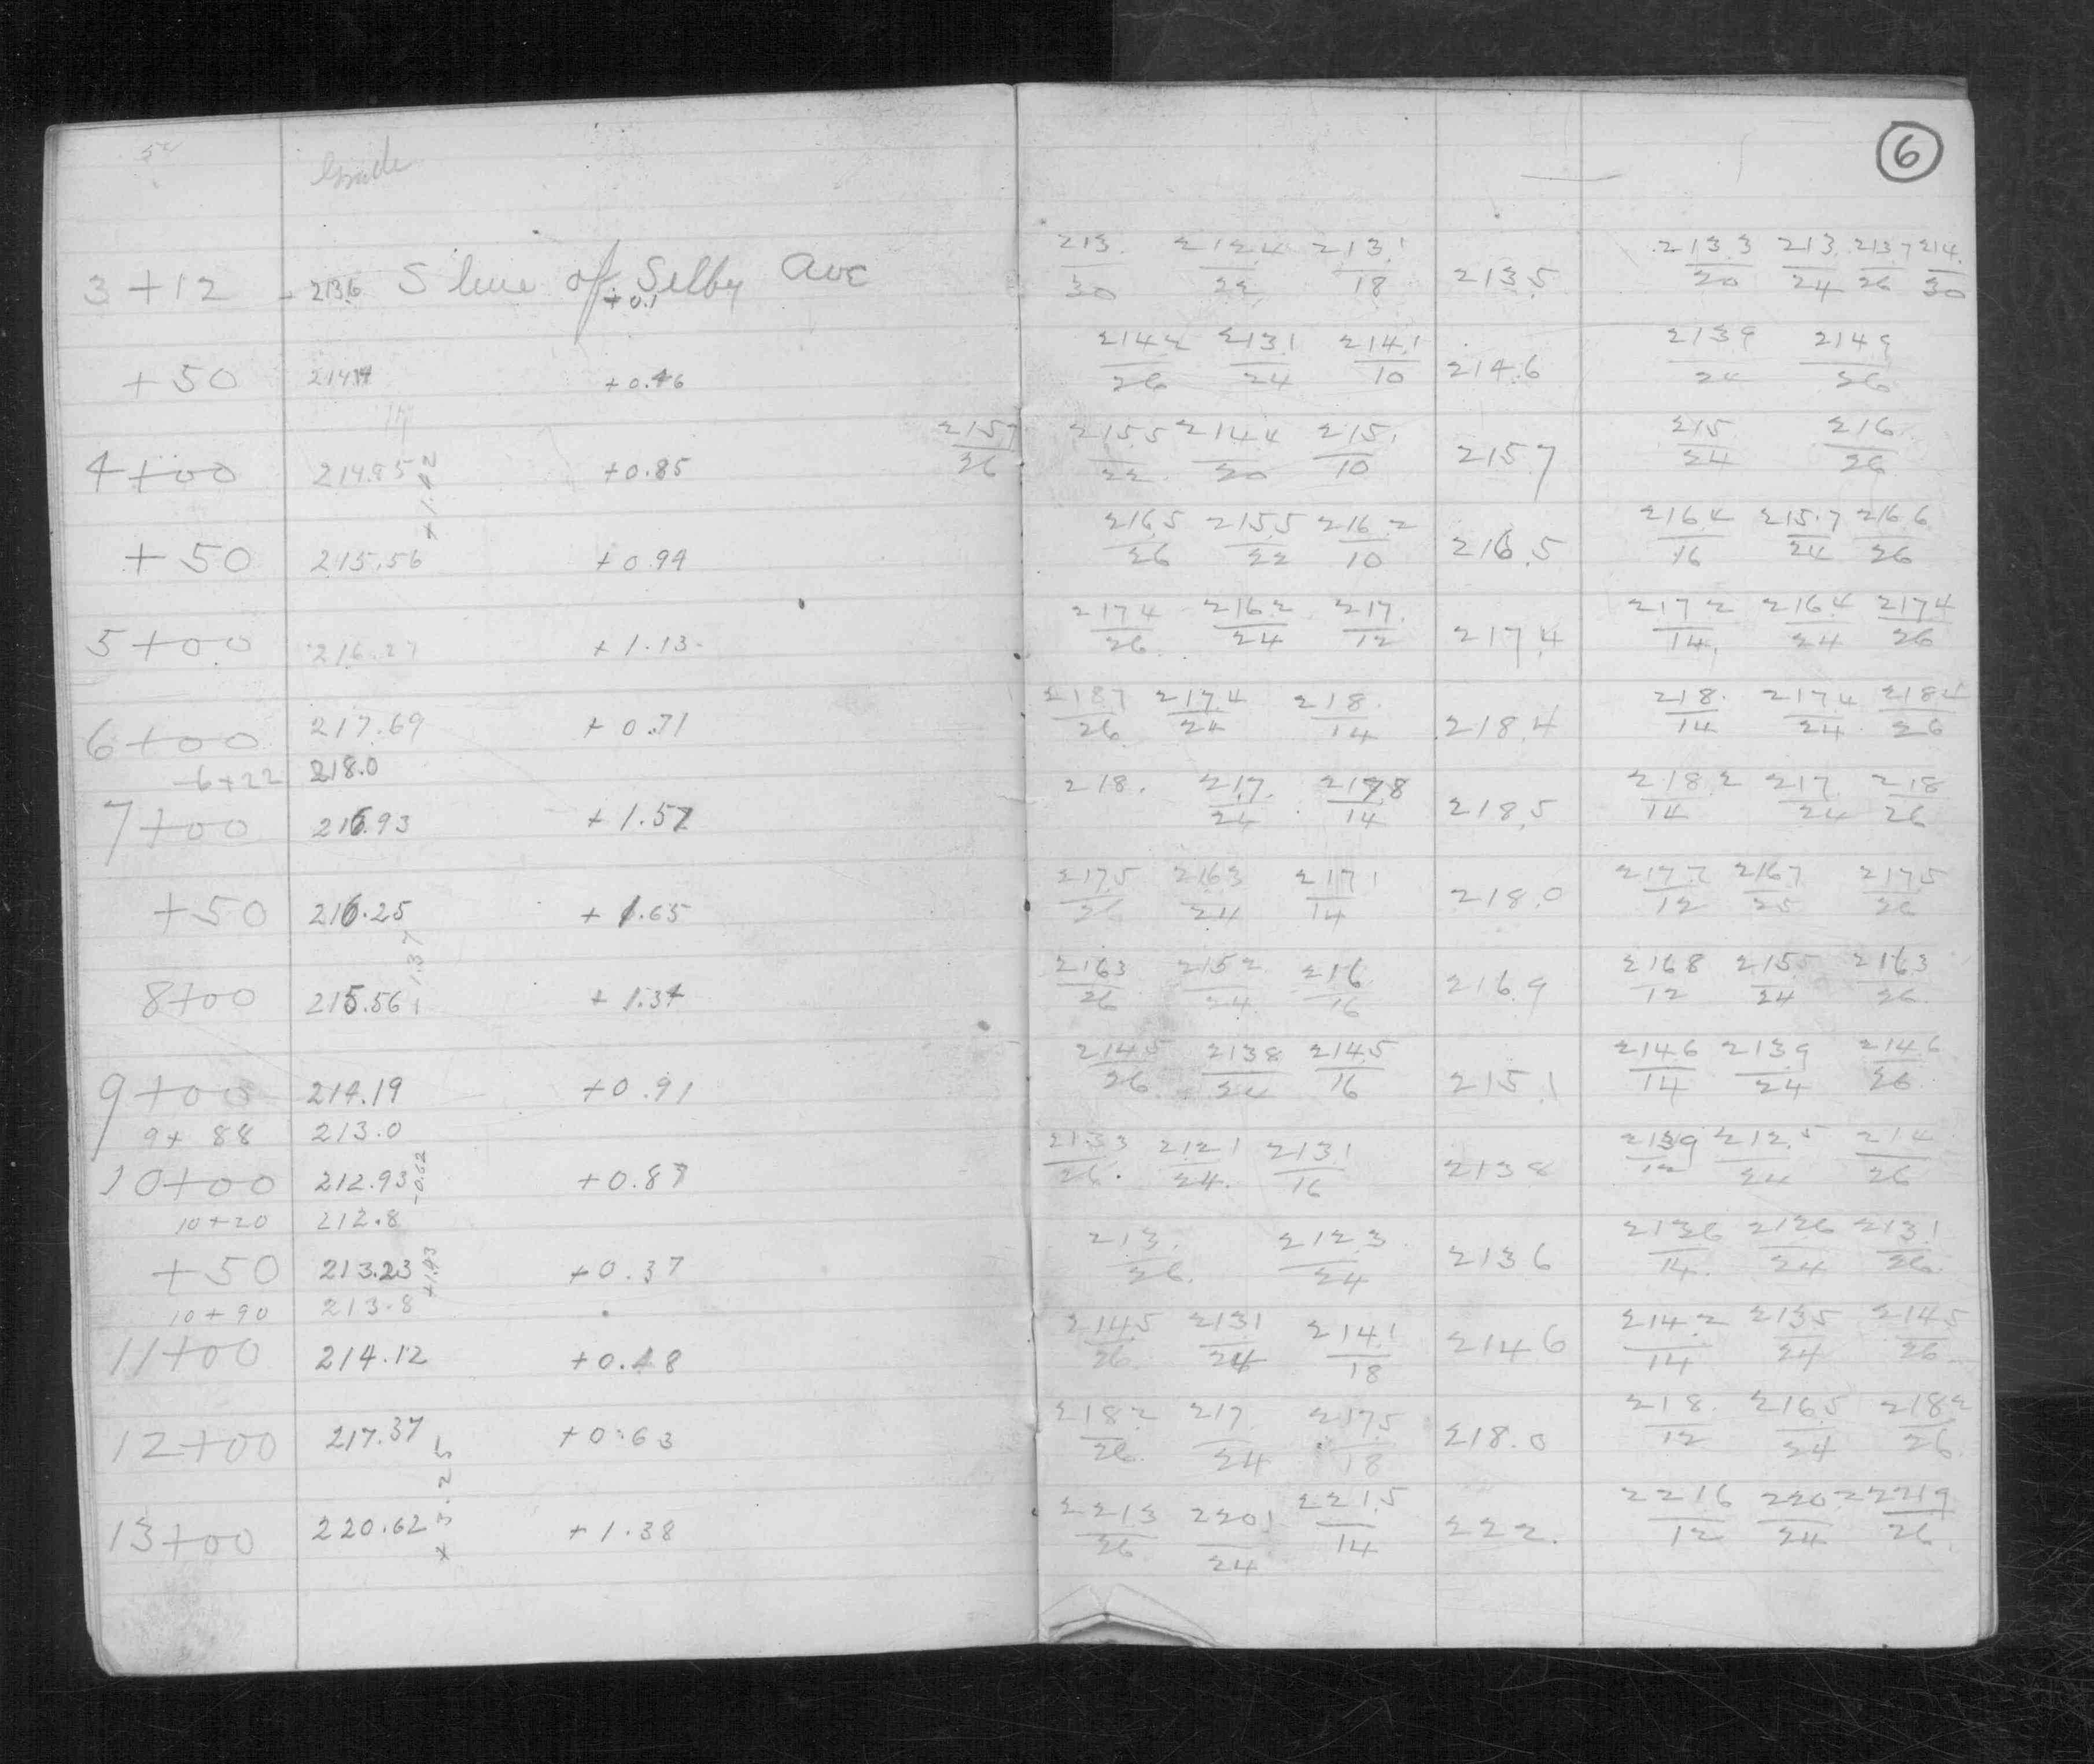 Grade
6
3+12 213.6 S line of Selby Ave +0.1 213./30 212.4/22 213.1/18 213.5 213.3/20 213./24 213.7/26 214./30
+50 214.14 +0.46 214.2/26 213.1/24 214.1/10 214.6 213.9/24 214.9/26
4+00 214.85 +0.85 215.7/26 215.5/22 214.4/20 215./10 215.7 215/24 216/26
+1.42
+50 215.56 +0.94 216.5/26 215.5/22 216.2/10 216.5 216.4/16 215.7/24 216.6/26
5+00 216.27 +1.13 217.4/26 216.2/24 217./12 217.4 217.2/14 216.4/24 217.4/26
6+00 217.69 +0.71 218.7/26 217.4/24 218./14 218.4 218./14 217.4/24 218.4/26
6+22 218.0
7+00 216.93 +1.57 218. 217./24 217.8/14 218.5 218.2/14 217./24 218/26
+50 216.25 +1.65 217.5/26 216.3/24 217.1/14 218.0 217.7/12 216.7/25 217.5/26
1.37
8+00 215.56 +1.34 216.3/26 215.2/24 216./16 216.9 216.8/12 215.5/24 216.3/26
9+00 214.19 +0.91 214.5/26 213.8/24 214.5/16 215.1 214.6/14 213.9/24 214.6/26
9+88 213.0
10+00 212.93 +0.87 213.3/26 212.1/24 213.1/16 213.8 213.9/12 212.5/24 214/26
-0.62
10+20 212.8
+50 213.23 +0.37 213./26 212.3/24 213.6 213.6/14 212.6/24 213.1/26
+1.43
10+90 213.8
11+00 214.12 +0.48 214.5/26 213.1/24 214.1/18 214.6 214.2/14 213.5/24 214.5/26
12+00 217.37 +0.63 218.2/26 217./24 217.5/18 218.0 218./12 216.5/24 218.2/26
+3.25
13+00 220.62 +1.38 221.3/26 220.1/24 221.5/14 222. 221.6/12 220.2/24 221.9/26